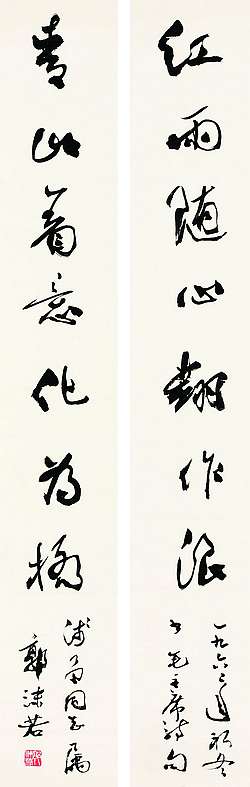 紅雨隨心翻作浪
一九六三年初冬
書毛主席詩句
青山着意化為橋
同志屬
郭沫若